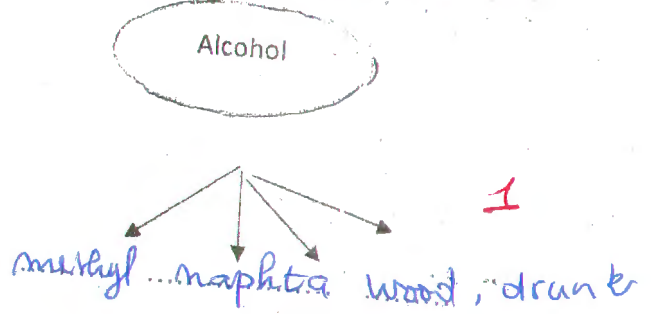 Alcohol
1
methyl ... naphtra wood, drunk